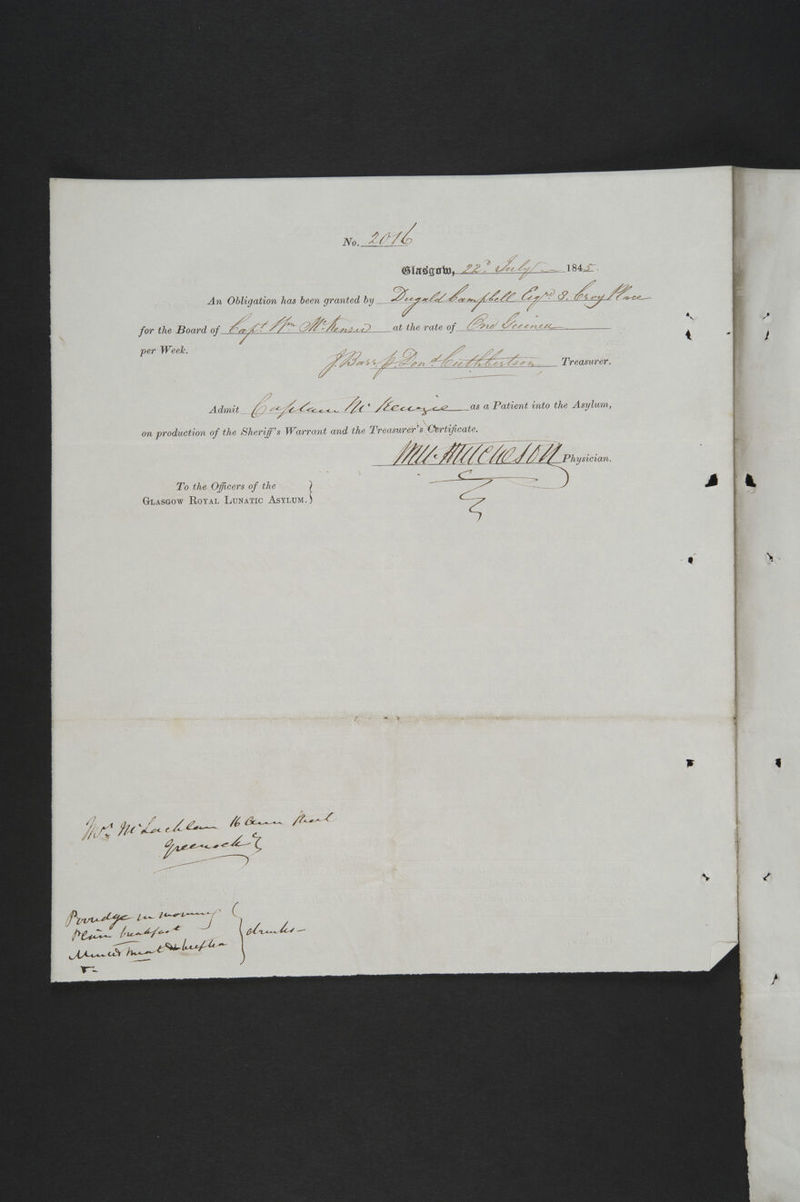 No. 2016
Glasgow, 22d July 1845.
An Obligation has been granted by Dugald Campbell Esqre 8. Croy Place
for the Board of Capt Wm McKensie at the rate of One Guinea
per Week.
J. Barr p. Don & Cuthbertson Treasurer.
Admit Captain McKenzie as a Patient into the Asylum,
on production of the Sheriff's Warrant and the Treasurer's Certificate.
Physician.
To the Officers of the
Glasgow Royal Lunatic Asylum.
Mrs McLachlan 16 Ann Street
Greenock
Porridge in morning
Plain breakfast
Minced meat beef tea
drinks